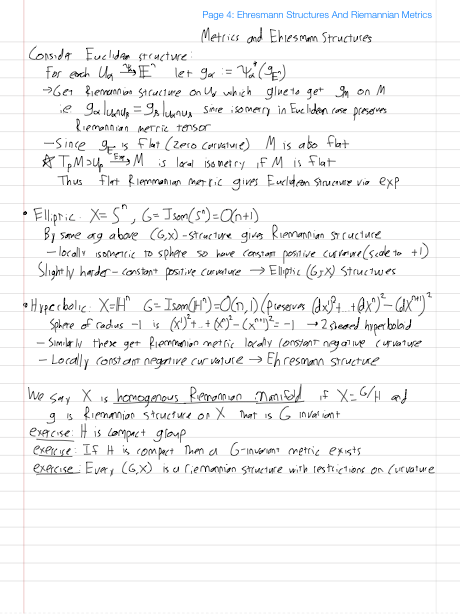 Page 4: Ehresmann Structures And Riemannian Metrics
Metrics and Ehresmann Structures
Consider Euclidean structure:
For each Uα —ψα→ Eⁿ let gα := ψα*(g_E)
→ Get Riemannian structure on Uα which glue to get g_M on M
i.e. gα|Uα∩Uβ = gβ|Uα∩Uβ since isometry in Euclidean case preserves
Riemannian metric tensor
– Since g_E is flat (zero curvature) M is also flat
☆ TpM ⊃ Up —Exp→ M is local isometry if M is flat
Thus flat Riemannian metric gives Euclidean structure via exp
• Elliptic: X = Sⁿ, G = Isom(Sⁿ) = O(n+1)
By same arg above (G,X)-structure gives Riemannian structure
– locally isometric to sphere so have constant positive curvature (scale to +1)
Slightly harder – constant positive curvature → Elliptic (G,X) structures
• Hyperbolic: X = Hⁿ G = Isom(Hⁿ) = O(n,1) (preserves (dx¹)² + ... + (dxⁿ)² – (dxⁿ⁺¹)²
Sphere of radius –1 is (x¹)² + ... + (xⁿ)² – (xⁿ⁺¹)² = –1 → 2 sheeted hyperboloid
– Similarly these get Riemannian metric locally constant negative curvature
– Locally constant negative curvature → Ehresmann structure
We say X is homogenous Riemannian manifold if X = G/H and
g is Riemannian structure on X that is G invariant
exercise: H is compact group
exercise: If H is compact then a G-invariant metric exists
exercise: Every (G,X) is a riemannian structure with restrictions on curvature